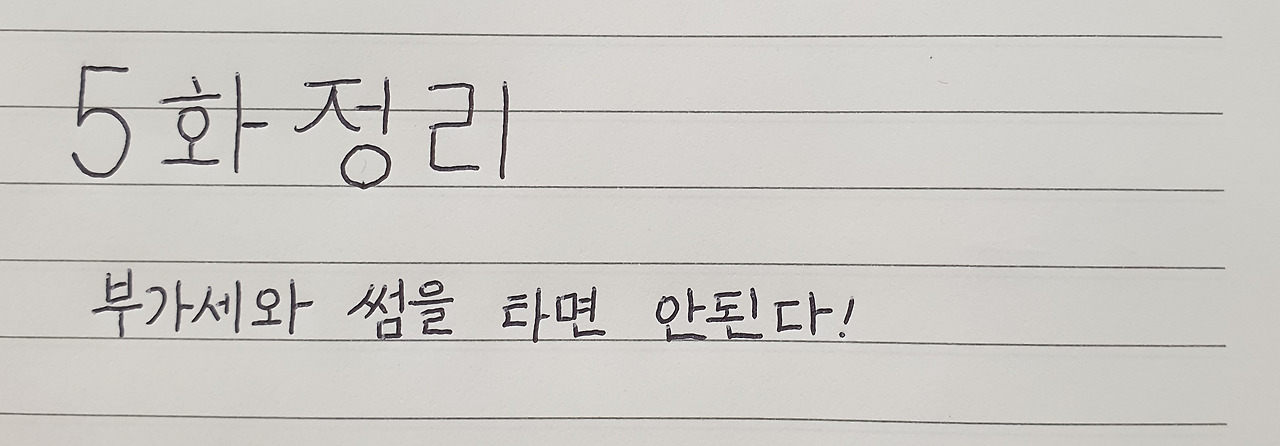 5화 정리
부가세와 썸을 타면 안된다!